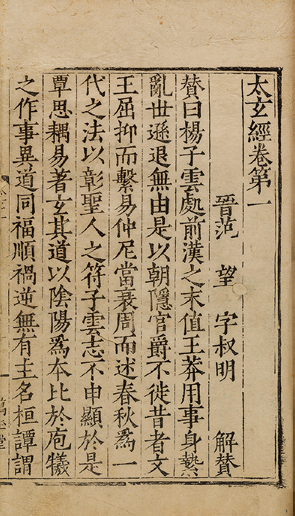 太玄經卷第一
晉范 望 字叔明 解贊
贊曰楊子雲處前漢之末值王莽用事身縶
亂世遜退無由是以朝隱官爵不徙昔者文
王屈抑而繫易仲尼當衰周而述春秋爲一
代之法以彰聖人之符子雲志不申顯於是
覃思耦易著玄其道以陰陽爲本比於庖犧
之作事異道同福順禍逆無有主名桓譚謂